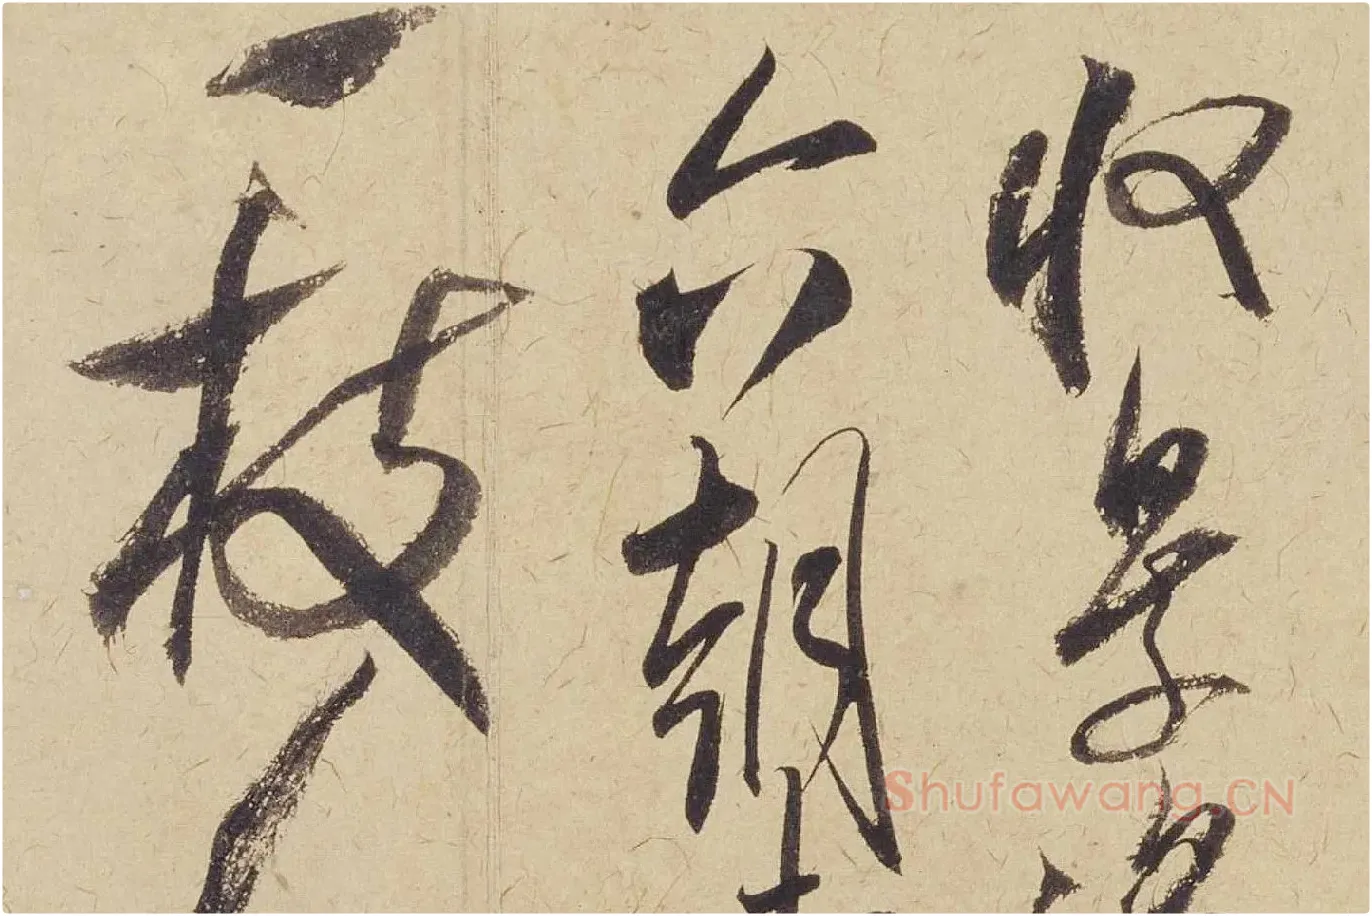 收景
六朝
一枝
Shufawang.CN